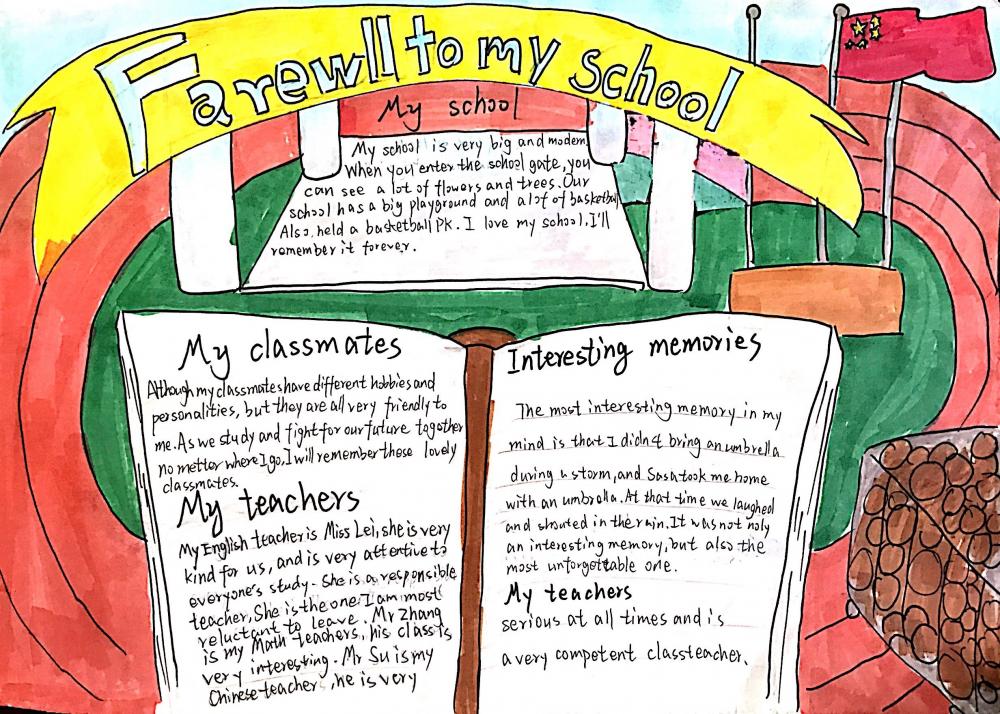 Farewll to my school
My school
My school is very big and modern.
When you enter the school gate, you
can see a lot of flowers and trees. Our
school has a big playground and a lot of basketball
Also held a basketball PK. I love my school. I'll
remember it forever.
My classmates
Although my classmates have different hobbies and
personalities, but they are all very friendly to
me. As we study and fight for our future together
no metter where I go, I will remember these lovely
classmates.
My teachers
My English teacher is Miss Lei, she is very
kind for us, and is very attentive to
everyone's study. She is a responsible
teacher, She is the one I am most
reluctant to leave. Mr Zhang
is my Math teachers, his class is
very interesting. Mr Su is my
Chinese teacher, he is very
Interesting memories
The most interesting memory in my
mind is that I didn't bring an umbrella
during a storm, and Sasa took me home
with an umbrella. At that time we laughed
and shouted in the rain. It was not noly
an interesting memory, but also the
most unforgettable one.
My teachers
serious at all times and is
a very competent classteacher.